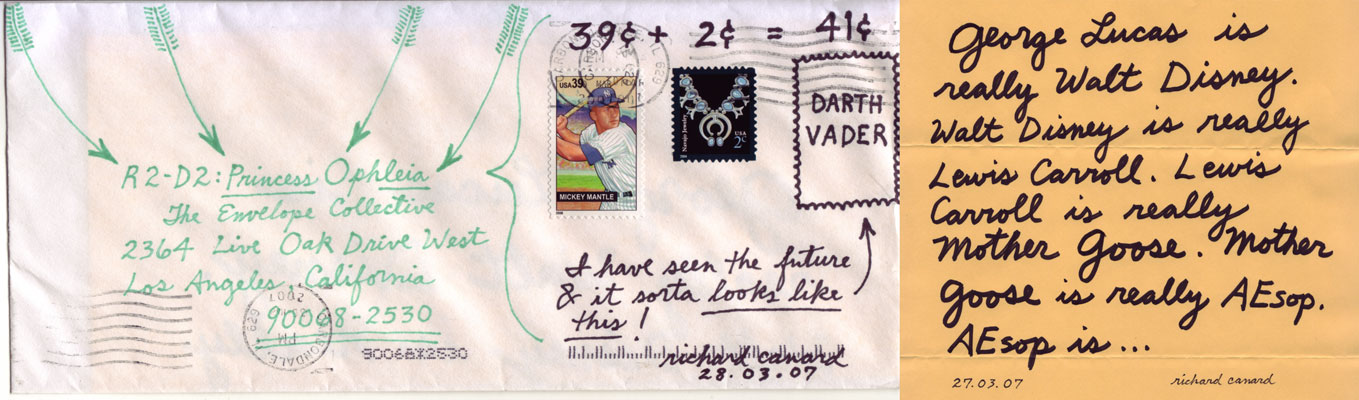 39¢ + 2¢ = 41¢
USA 39
MICKEY MANTLE
Navajo Jewelry
USA
2¢
DARTH
VADER
R2-D2: Princess Ophleia
The Envelope Collective
2364 Live Oak Drive West
Los Angeles, California
90068-2530
I have seen the future
& it sorta looks like
this!
richard canard
28.03.07
90068X2530
PM
2007
629
George Lucas is
really Walt Disney.
Walt Disney is really
Lewis Carroll. Lewis
Carroll is really
Mother Goose. Mother
Goose is really AEsop.
AEsop is...
27.03.07
richard canard